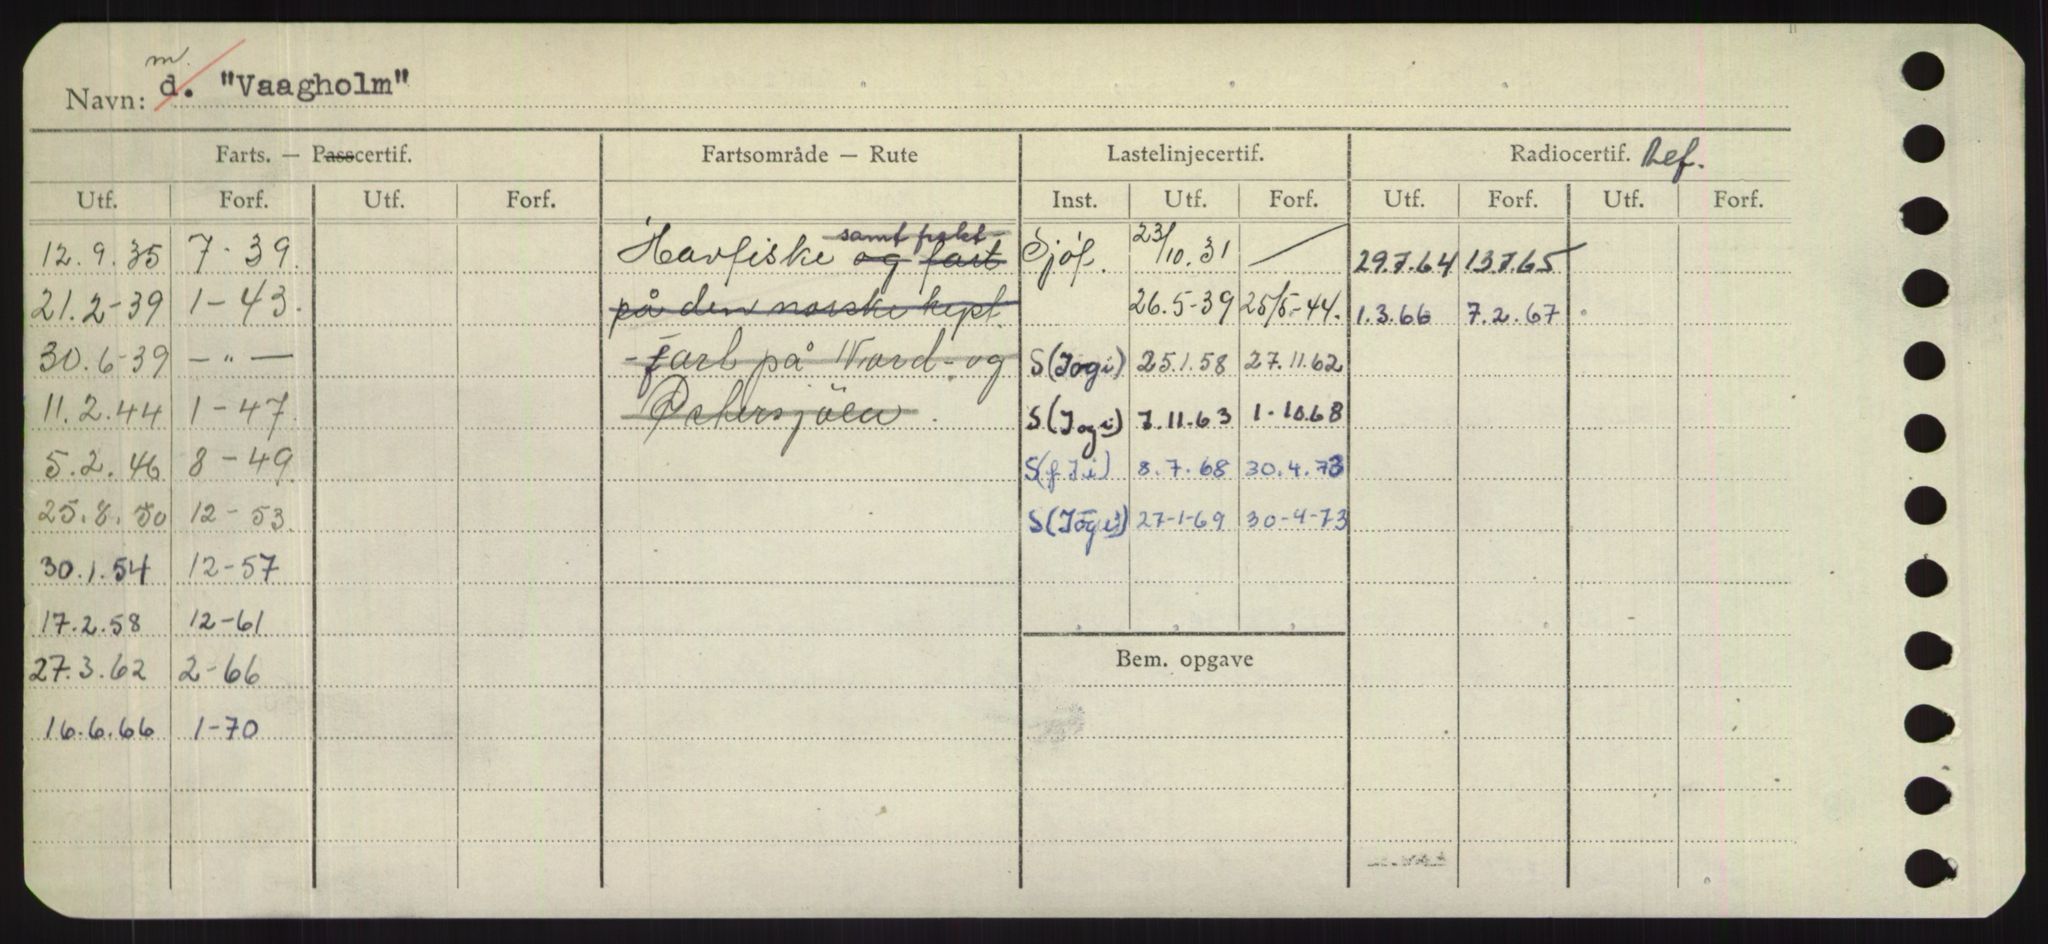 m.
Navn: d. "Vaagholm"
Farts. — Passcertif. Fartsområde — Rute Lastelinjecertif. Radiocertif. Ref.
Utf. Forf. Utf. Forf. Inst. Utf. Forf. Utf. Forf. Utf. Forf.
samt frakt-
12.9.35 7-39. Havfiske og fart Sjöf. 23/10.31 — 29.7.64 13.7.65
21.2-39 1-43. på den norske kyst. 26.5-39 25/5.-44. 1.3.66 7.2.67
30.6-39 —"— -fart på Nord- og S(Jogi) 25.1.58 27.11.62
11.2.44 1-47. Östersjöen. S(Jogi) 7.11.63 1-10.68
5.2.46 8-49. S(fJi) 8.7.68 30.4.73
25.8.50 12-53. S(Jogi) 27-1-69 30-4-73
30.1.54 12-57
17.2.58 12-61
Bem. opgave
27.3.62 2-66
16.6.66 1-70